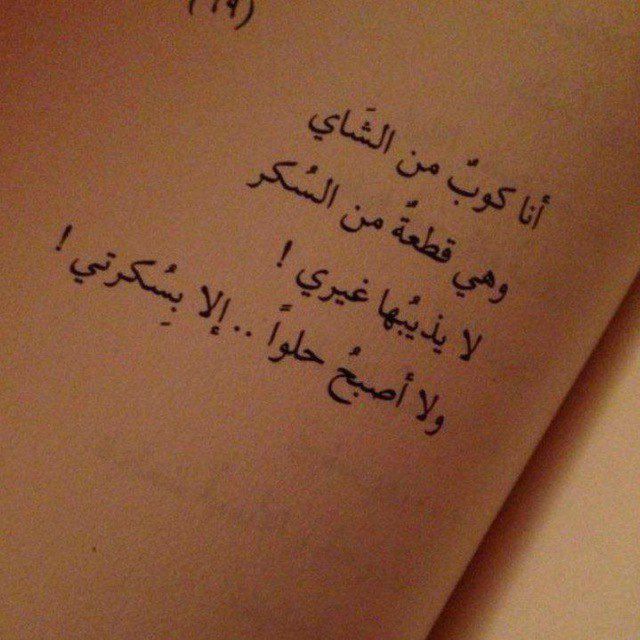 أنا كوبٌ من الشَاي
وهي قطعةٌ من السُكر
لا يذيبُها غيري !
ولا أصبحُ حلواً .. إلا بِسُكرتي !